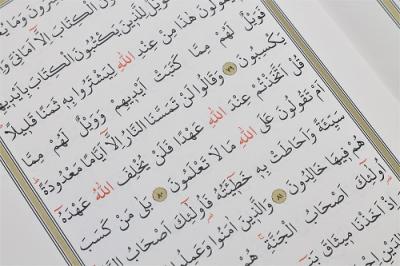 ونَ الْكِتَابَ إِلَّا أَمَانِيَّ
لِلَّذِينَ يَكْتُبُونَ الْكِتَابَ بِأَيْدِيهِمْ
هٰذَا مِنْ عِنْدِ اللّٰهِ لِيَشْتَرُوا بِهِ ثَمَنًا قَلِيلًا
فَوَيْلٌ لَهُمْ مِمَّا كَتَبَتْ أَيْدِيهِمْ وَوَيْلٌ لَهُمْ مِمَّا
يَكْسِبُونَ ٧٩ وَقَالُوا لَنْ تَمَسَّنَا النَّارُ إِلَّا أَيَّامًا مَعْدُودَةً
قُلْ أَتَّخَذْتُمْ عِنْدَ اللّٰهِ عَهْدًا فَلَنْ يُخْلِفَ اللّٰهُ عَهْدَهُ
أَمْ تَقُولُونَ عَلَى اللّٰهِ مَا لَا تَعْلَمُونَ ٨٠ بَلٰى مَنْ كَسَبَ
سَيِّئَةً وَأَحَاطَتْ بِهِ خَطِيئَتُهُ فَأُولٰئِكَ أَصْحَابُ النَّارِ
هُمْ فِيهَا خَالِدُونَ ٨١ وَالَّذِينَ آمَنُوا وَعَمِلُوا
أُولٰئِكَ أَصْحَابُ الْجَنَّةِ هُمْ
إِذْ أَخَذْنَا مِيثَاقَ بَنِي